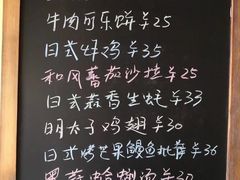 牛肉可乐饼￥25
日式炸鸡￥35
和风蕃茄沙拉￥25
日式蒜香生蚝￥33
明太子鸡翅￥30
日式烤芒果鳗鱼批萨￥36
蛤蜊汤￥30